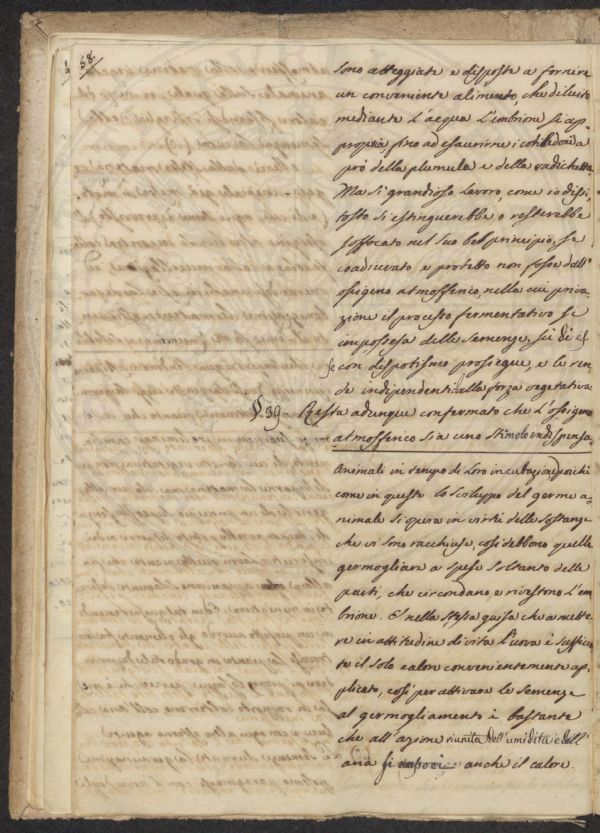 58.
sono atteggiate e disposte a fornire
un conveniente alimento, che diluito
mediante l'acqua l'embrione si ap-
propria, fino ad esaurirne i cotiledoni a
prò della plumula e della radichetta.
Ma sì grandioso lavoro, come io dissi,
tosto si estinguerebbe o resterebbe
soffocato nel suo bel principio, se
coadiuvato e protetto non fosse dall'
ossigeno atmosferico, nella cui priva-
zione il processo fermentativo se
impossessa delle semenze, su di es-
se con despotismo prosegue, e le ren-
de indipendenti alla forza vegetativa
§. 39. Resta adunque confermato che l'ossigeno
atmosferico sia uno stimolo indispensa-
animali in tempo di loro incubazione poichè
come in queste lo sviluppo del germe a-
nimale si opera in virtù delle sostanze
che vi sono racchiuse, così debbono quelle
germogliare a spese soltanto delle
parti, che circondano, e rivestono l'em-
brione. E nella stessa guisa che a mette-
re in attitudine di vita l'uova è sufficien-
te il solo calore convenientemente ap-
plicato, così per attivare le semenze
al germogliamento è bastante
che all'azione riunita dell'umidità e dell'
aria si anche il calore.